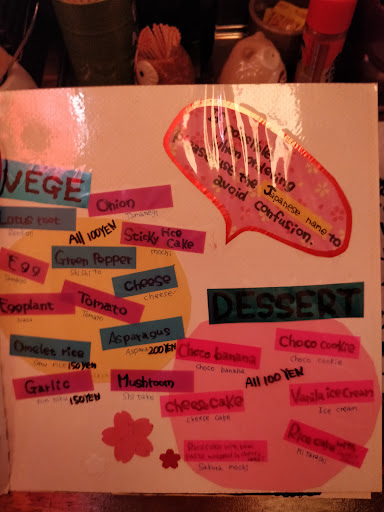 If possible
when ordering
please use the Japanese name to
avoid confusion.
VEGE
Onion
Tamanegi
Lotus root
Renkon
All 100YEN
Sticky rice
Cake
mochi
Egg
Green Pepper
Shishito
Cheese
cheese
Eggplant
Nasu
Tomato
Tomato
Asparagus
Aspara 200YEN
Omelet rice
Omu rice 150YEN
Garlic
150YEN
Mushroom
Shitake
DESSERT
Choco banana
choco banana
Choco cookie
choco cookie
All 100 YEN
Cheesecake
cheese cake
Vanila ice Cream
Ice cream
Rice cake with
Sakura mochi
Rice cake with
Mitarashi